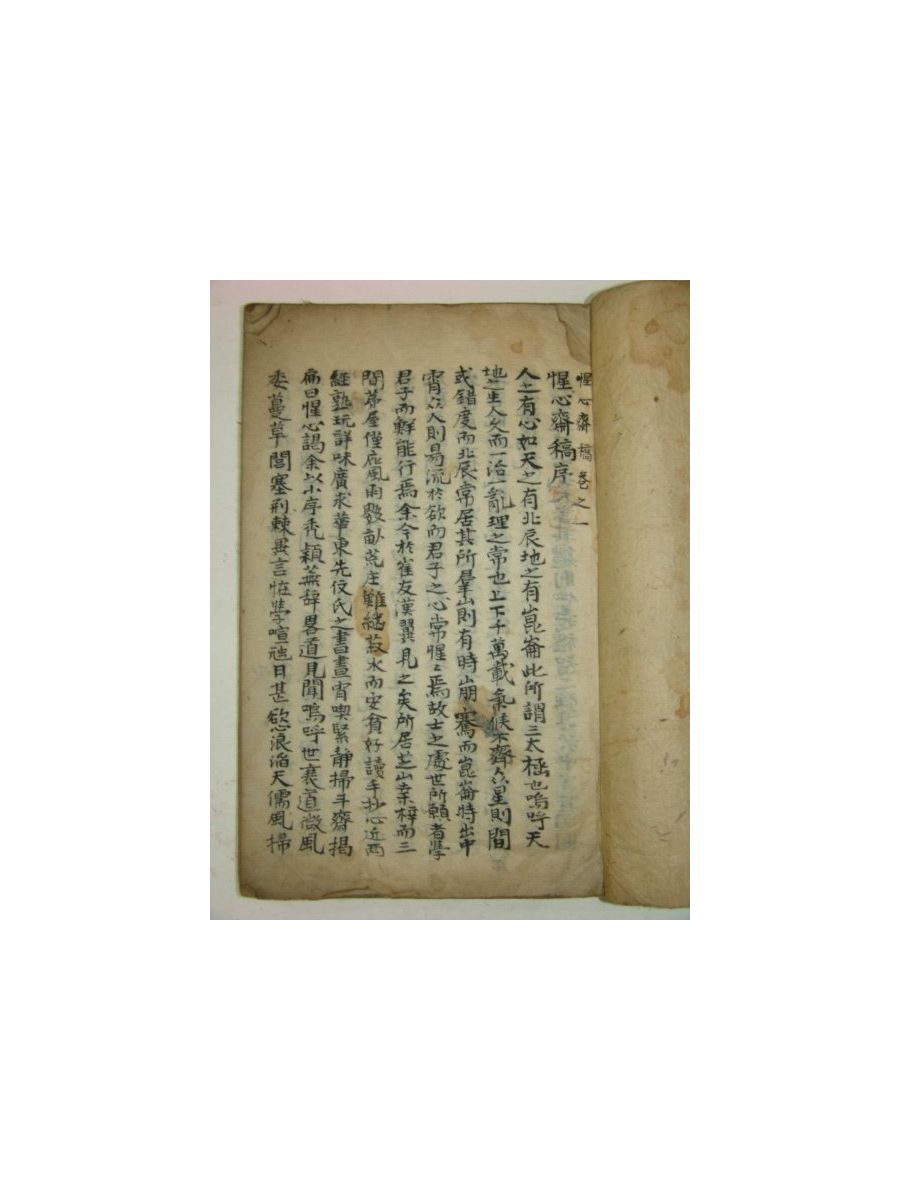 惺心齋稿卷之一
惺心齋稿序
人之有心如天之有北辰地之有崑崙此所謂三太極也嗚呼天
地之生人久而一治一亂理之常也上下千萬載氣候不齊众星則間
或錯度而北辰常居其所羣山則有時崩騫而崑崙特出中
霄众人則易流於欲而君子之心常惺〻焉故士之處世所願者學
君子而鮮能行焉余今於崔友漢翼見之矣所居芝山桒梓而三
間茅屋僅庇風雨數畝荒庄難繼菽水而安貧好讀手抄心近西
經熟玩詳味廣求華東先伩氏之書晝宵喫緊静掃斗齋揭
扁曰惺心謁余以小序秃穎蕪辞畧道見聞嗚呼世衰道微風
委蔓草閭塞荆棘異言恠學喧豗日甚慾浪滔天儒風掃